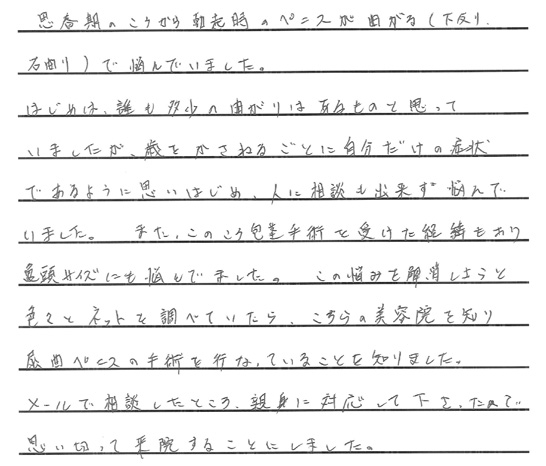 思春期のころから勃起時のペニスが曲がる(下反り、
右曲り)で悩んでいました。
はじめは、誰も多少の曲がりは有るものと思って
いましたが、歳をかさねるごとに自分だけの症状
であるように思いはじめ、人に相談も出来ず悩んで
いました。 また、このころ包茎手術を受けた経緯もあり
亀頭サイズにも悩んでました。 この悩みを解消しようと
色々とネットを調べていたら、こちらの美容院を知り
屈曲ペニスの手術を行なっていることを知りました。
メールで相談したところ、親身に対応して下さったので
思い切って来院することにしました。